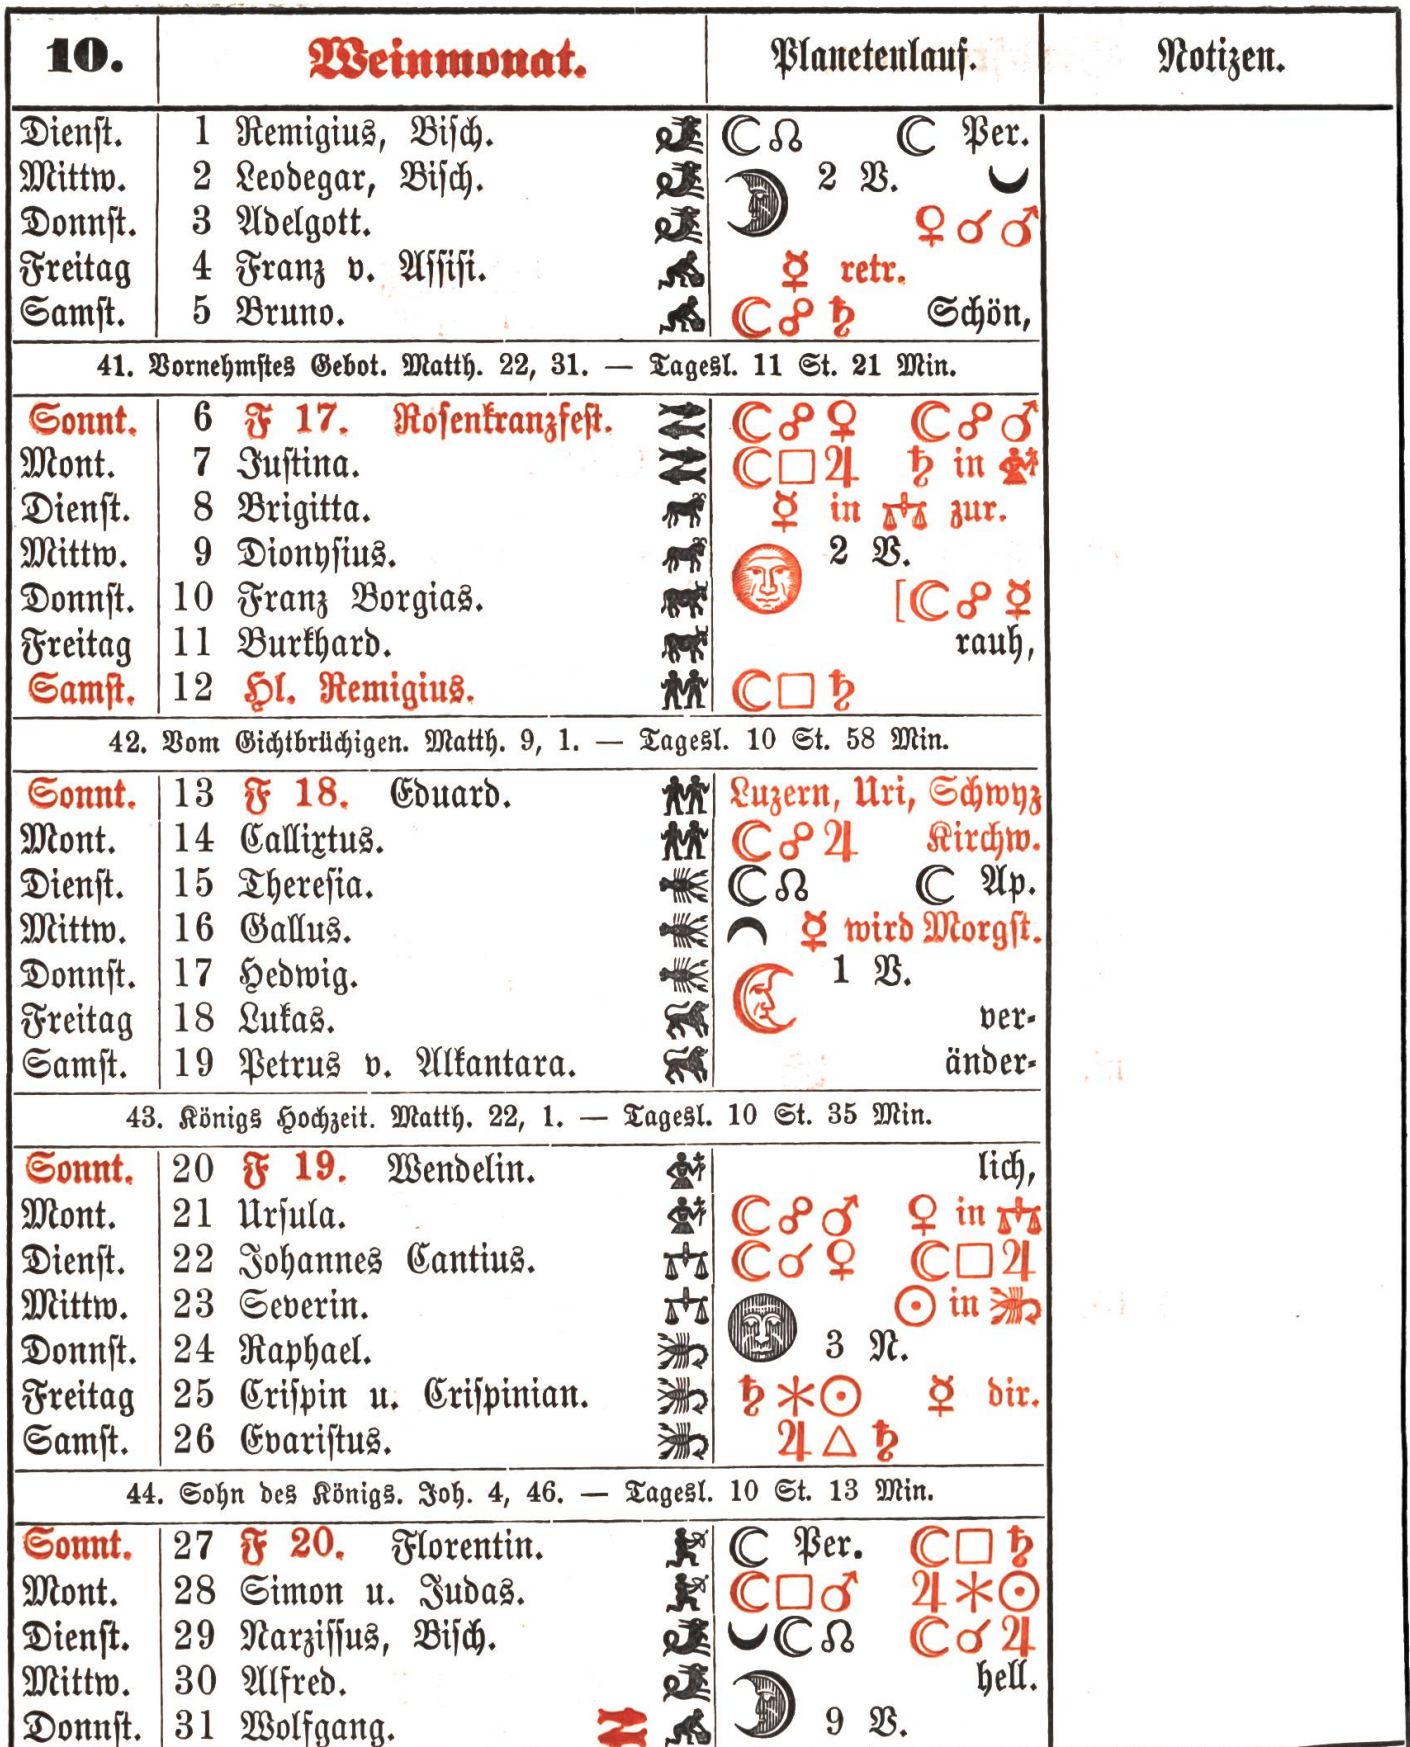 10. Weinmonat. Planetenlauf. Notizen.
Dienst. 1 Remigius, Bisch. ☾☊ ☾ Per.
Mittw. 2 Leodegar, Bisch. 2 V.
Donnst. 3 Adelgott. ♀☌♂
Freitag 4 Franz v. Assisi. ☿ retr.
Samst. 5 Bruno. ☾☍♄ Schön,
41. Vornehmstes Gebot. Matth. 22, 31. — Tagesl. 11 St. 21 Min.
Sonnt. 6 F 17. Rosenkranzfest. ☾☍♀ ☾☍♂
Mont. 7 Justina. ☾□♃ ♄ in
Dienst. 8 Brigitta. ☿ in zur.
Mittw. 9 Dionysius. 2 V.
Donnst. 10 Franz Borgias. [☾☍☿
Freitag 11 Burkhard. rauh,
Samst. 12 Hl. Remigius. ☾□♄
42. Vom Gichtbrüchigen. Matth. 9, 1. — Tagesl. 10 St. 58 Min.
Sonnt. 13 F 18. Eduard. Luzern, Uri, Schwyz
Mont. 14 Callixtus. ☾☍♃ Kirchw.
Dienst. 15 Theresia. ☾☊ ☾ Ap.
Mittw. 16 Gallus. ☿ wird Morgst.
Donnst. 17 Hedwig. 1 V.
Freitag 18 Lukas. ver-
Samst. 19 Petrus v. Alkantara. änder-
43. Königs Hochzeit. Matth. 22, 1. — Tagesl. 10 St. 35 Min.
Sonnt. 20 F 19. Wendelin. lich,
Mont. 21 Ursula. ☾☍♂ ♀ in
Dienst. 22 Johannes Cantius. ☾☌♀ ☾□♃
Mittw. 23 Severin. ☉ in
Donnst. 24 Raphael. 3 N.
Freitag 25 Crispin u. Crispinian. ♄⚹☉ ☿ dir.
Samst. 26 Evaristus. ♃△♄
44. Sohn des Königs. Joh. 4, 46. — Tagesl. 10 St. 13 Min.
Sonnt. 27 F 20. Florentin. ☾ Per. ☾□♄
Mont. 28 Simon u. Judas. ☾□♂ ♃⚹☉
Dienst. 29 Narzissus, Bisch. ☾☊ ☾☌♃
Mittw. 30 Alfred. hell.
Donnst. 31 Wolfgang. 9 V.